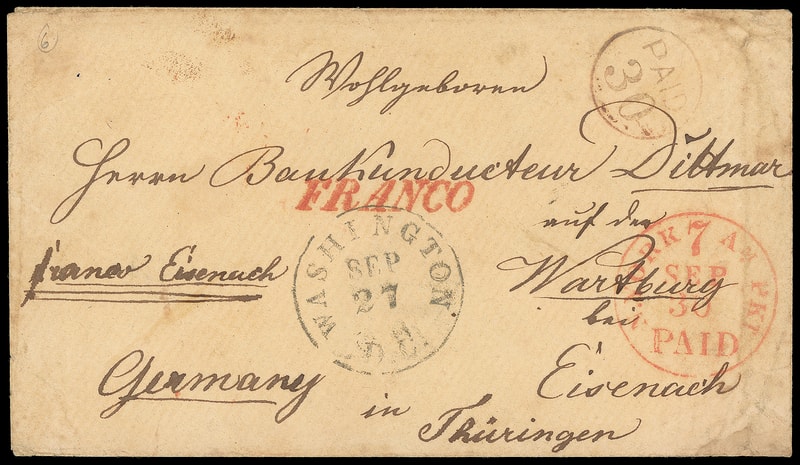 6
PAID
30
Wohlgeboren
Herrn Bankunducteur Dittmar
FRANCO
auf der
franco Eisenach
Wartburg
bei
Germany
Eisenach
in
Thüringen
WASHINGTON
SEP
27
D.C.
YORK AM PKT
7
SEP
30
PAID